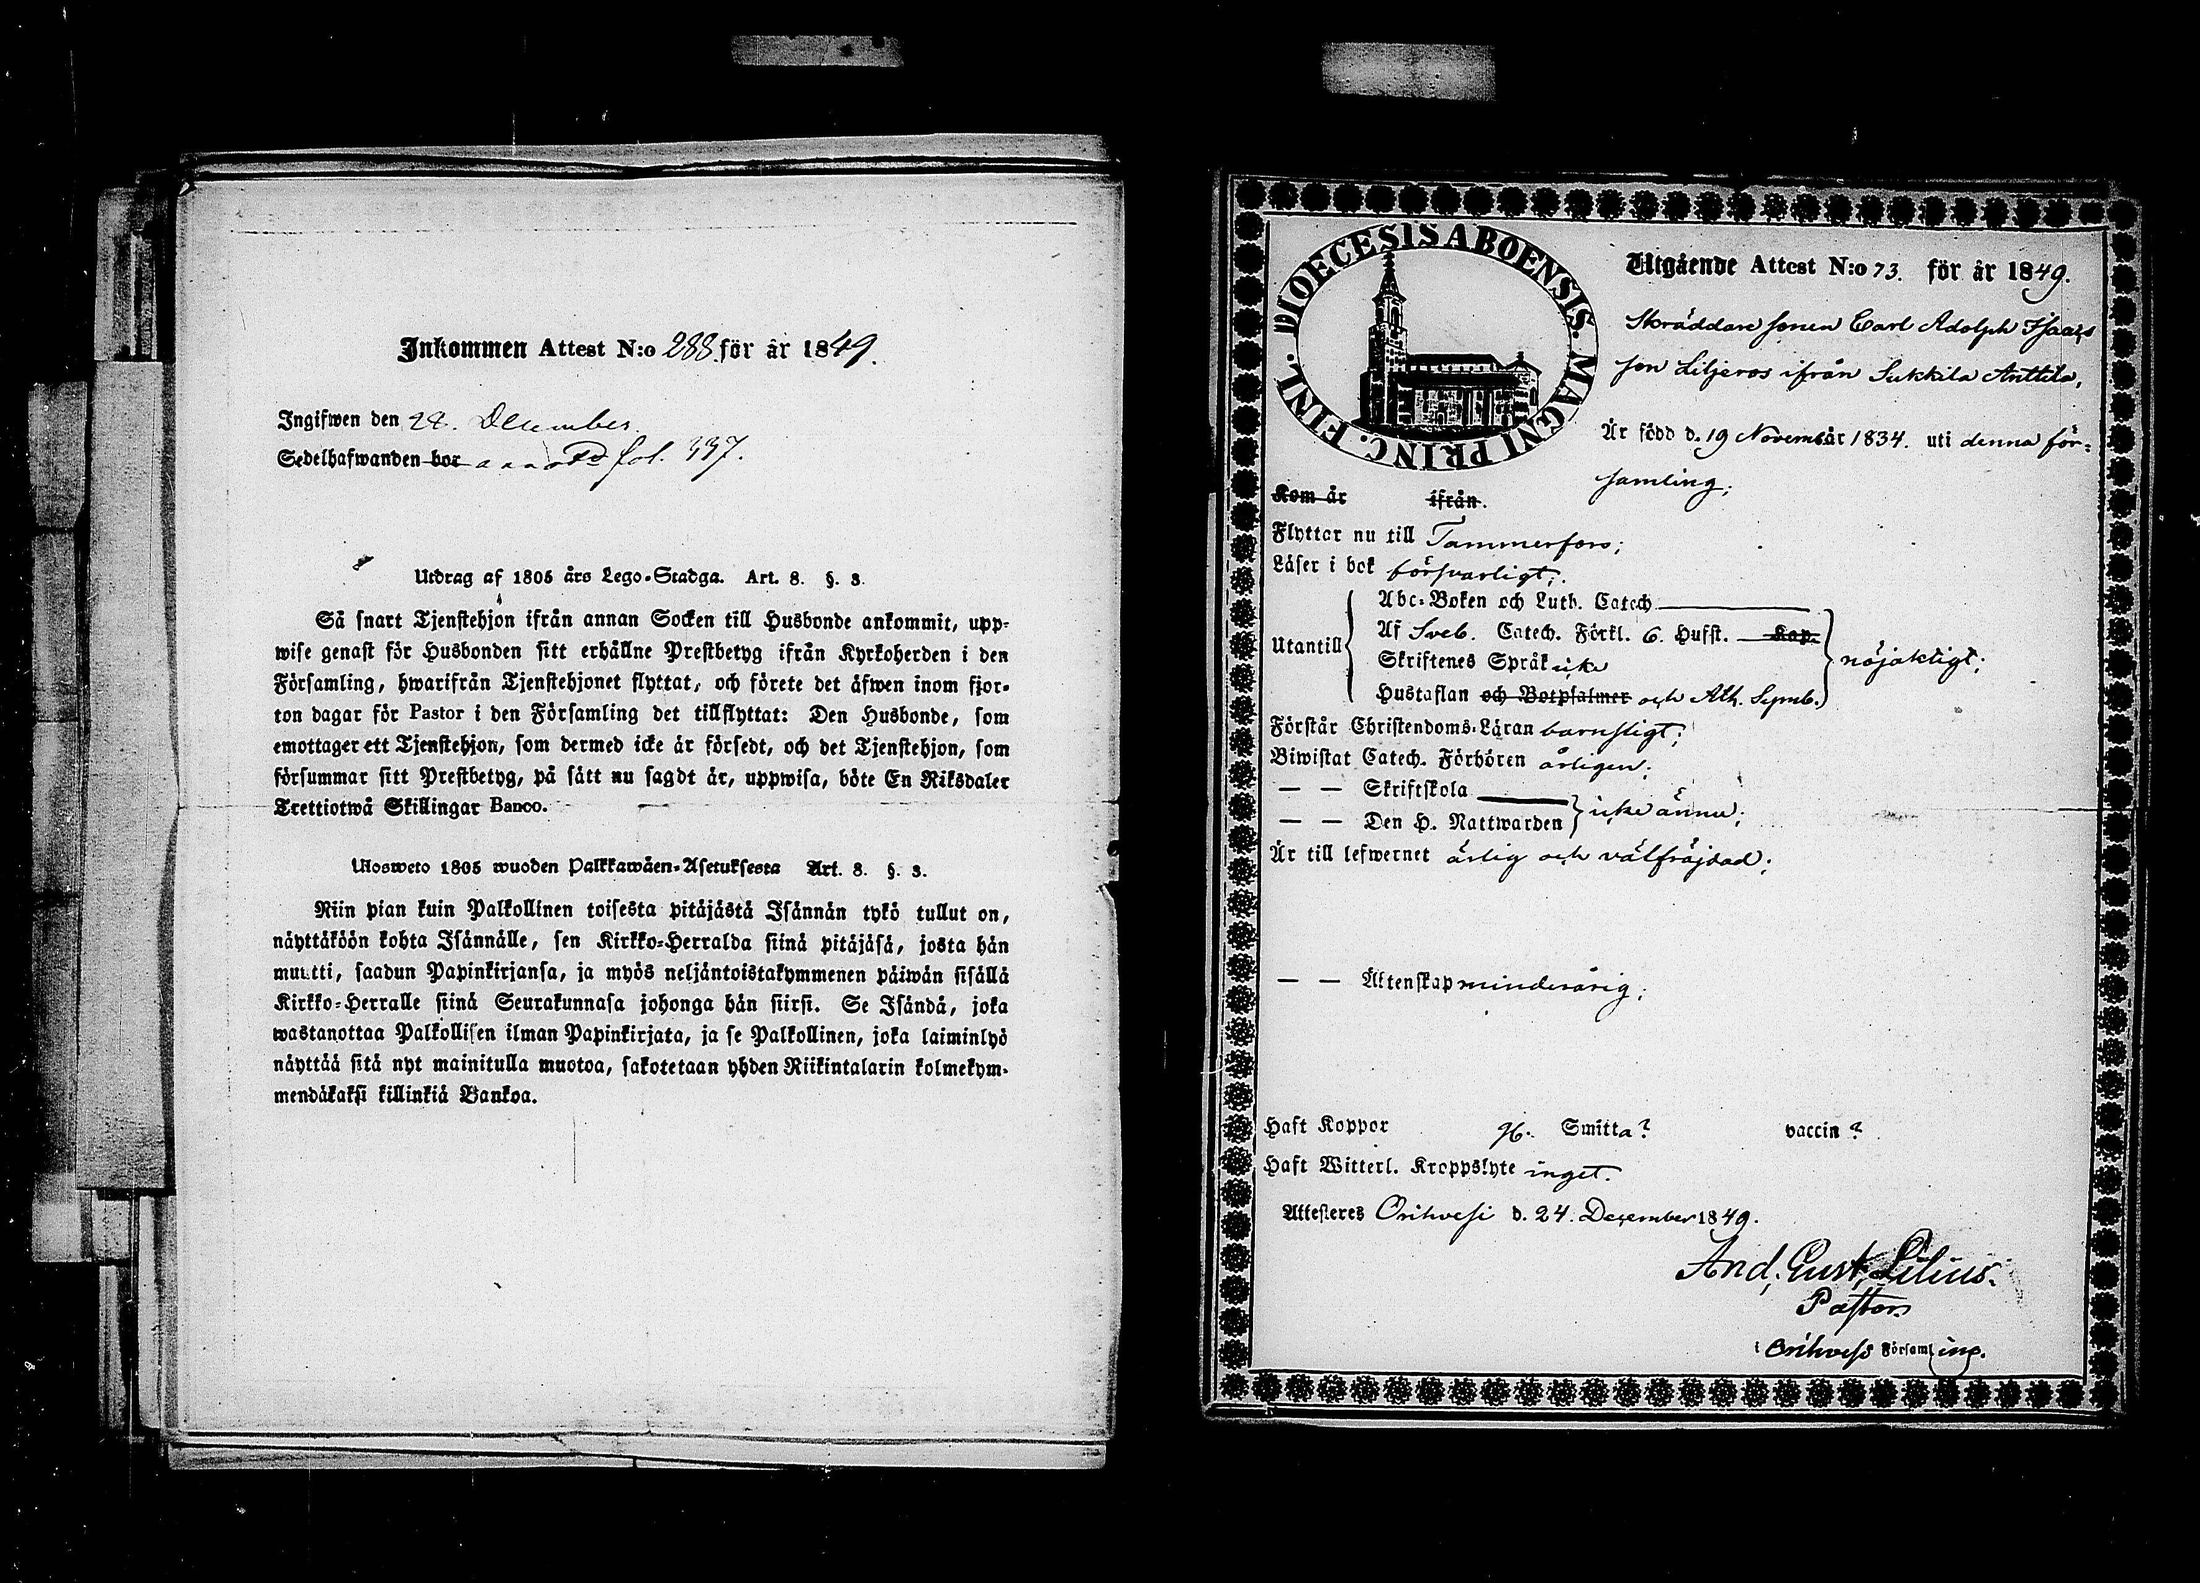 Inkommen Attest N:o 288. för år 1849.
Ingifwen den 28. December
Sedelhafwanden bor annot fol. 337.
Utdrag af 1805 års Lego-Stadga. Art. 8. §. 3.
Så snart Tjenstehjon ifrån annan Socken till Husbonde ankommit, upp-
wise genast för Husbonden sitt erhållne Prestbetyg ifrån Kyrkoherden i den
Församling, hwarifrån Tjenstehjonet flyttat, och förete det äfwen inom fjor-
ton dagar för Pastor i den Församling det tillflyttat: Den Husbonde, som
emottager ett Tjenstehjon, som dermed icke är försedt, och det Tjenstehjon, som
försummar sitt Prestbetyg, på sätt nu sagdt är, uppwisa, böte En Riksdaler
Trettiotwå Skillingar Banco.
Ulosweto 1805 wuoden Palkkawäen-Asetuksesta Art. 8. §. 3.
Niin pian kuin Palkollinen toisesta pitäjästä Isännän tykö tullut on,
näyttäköön kohta Isännälle, sen Kirkko-Herralda siinä pitäjäsä, josta hän
muutti, saadun Papinkirjansa, ja myös neljäntoistakymmenen päiwän sisällä
Kirkko-Herralle siinä Seurakunnasa johonga hän siirsi. Se Isändä, joka
wastanottaa Palkollisen ilman Papinkirjata, ja se Palkollinen, joka laiminlyö
näyttää sitä nyt mainitulla muotoa, sakotetaan yhden Riikintalarin kolmekym-
mendäkaksi killinkiä Bankoa.
DIOECESIS ABOENSIS. MAGNI PRINC. FINL.
Utgående Attest N:o 73. för år 1849.
Skräddare sonen Carl Adolph Isaacs
son Liljeros ifrån Sukkila Anttila,
Är född d. 19 Novemb år 1834. uti denna för-
samling;
Kom år ifrån.
Flyttar nu till Tammerfors;
Läser i bok försvarligt;
Abc-Boken och Luth. Catech.
Utantill Af Sveb. Catech. Förkl. 6. Hufst. Kap. nöjaktigt;
Skriftenes Språk icke
Hustaflan och Botpsalmer och Ath. Symb.
Förstår Christendoms-Läran barnsligt;
Biwistat Catech. Förhören årligen;
— — Skriftskola
— — Den H. Nattwarden icke ännu;
Är till lefwernet ärlig och välfräjdad;
— — Äktenskap minderårig;
Haft Koppor Smitta? vaccin?
Haft Witterl. Kroppslyte inget.
Attesteres Orihvesi d. 24. December 1849.
And. Gust. Lilius.
Pastor
i Orihvesi Församling.